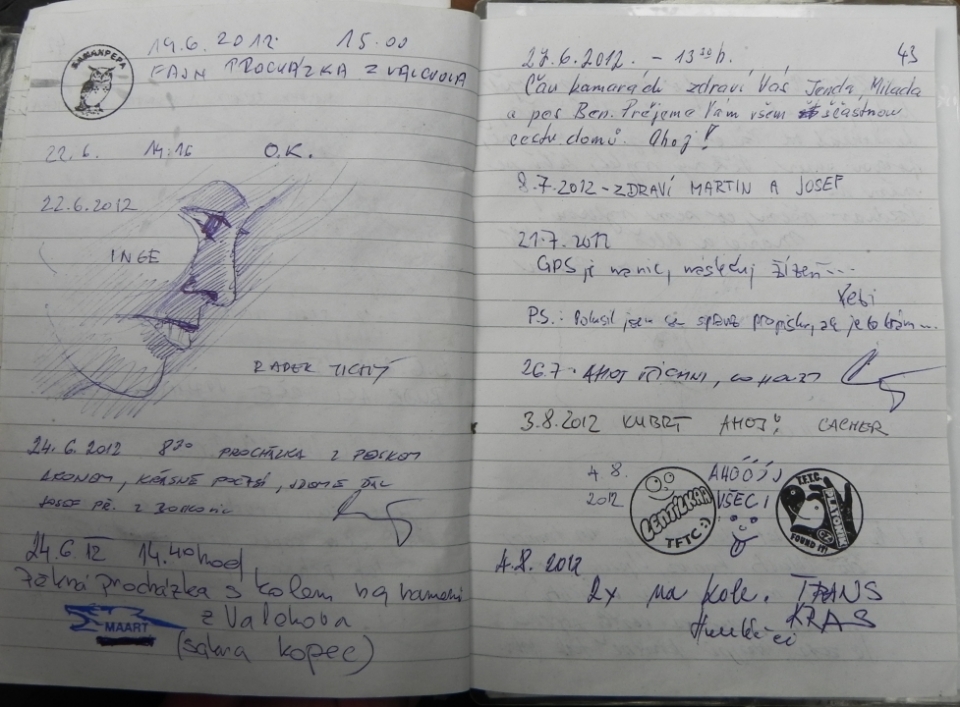 BAKANPEPA
19.6.2012 15.00
FAJN PROCHÁZKA Z VALCHOVA
22.6. 14:16 O.K.
22.6.2012
INGE
RADEK TICHÝ
24.6.2012 8³⁰ PROCHÁZKA S PESKEM
KRÁSNÉ POČASÍ, JDEME DÁL
JOSEF PŘ. Z
24.6 12 14.40 hod
Pěkná procházka s kolem na rameni
z Valchova
MAART
(sakra kopec)
43
27.6.2012. - 13³⁰h.
Čau kamarádi zdraví Vás Jenda, Milada
a pes Ben. Přejeme Vám všem šťastnou
cestu domů. Ahoj!
8.7.2012 - ZDRAVÍ MARTIN A JOSEF
21.7.2012
GPS je na nic, následuj žízeň...
P.S.: Pokusil jsem se propisku,
26.7. AHOJ VŠICHNI,
3.8.2012 AHOJ! CACHER
4.8. AHÓÓJ
2012 VŠECI
LENTILKAA
TFTC :)
T.F.T.C.
PLATONIK
CZ
FOUND IT!
4.8.2012
2x na kole. TRANS
KRAS